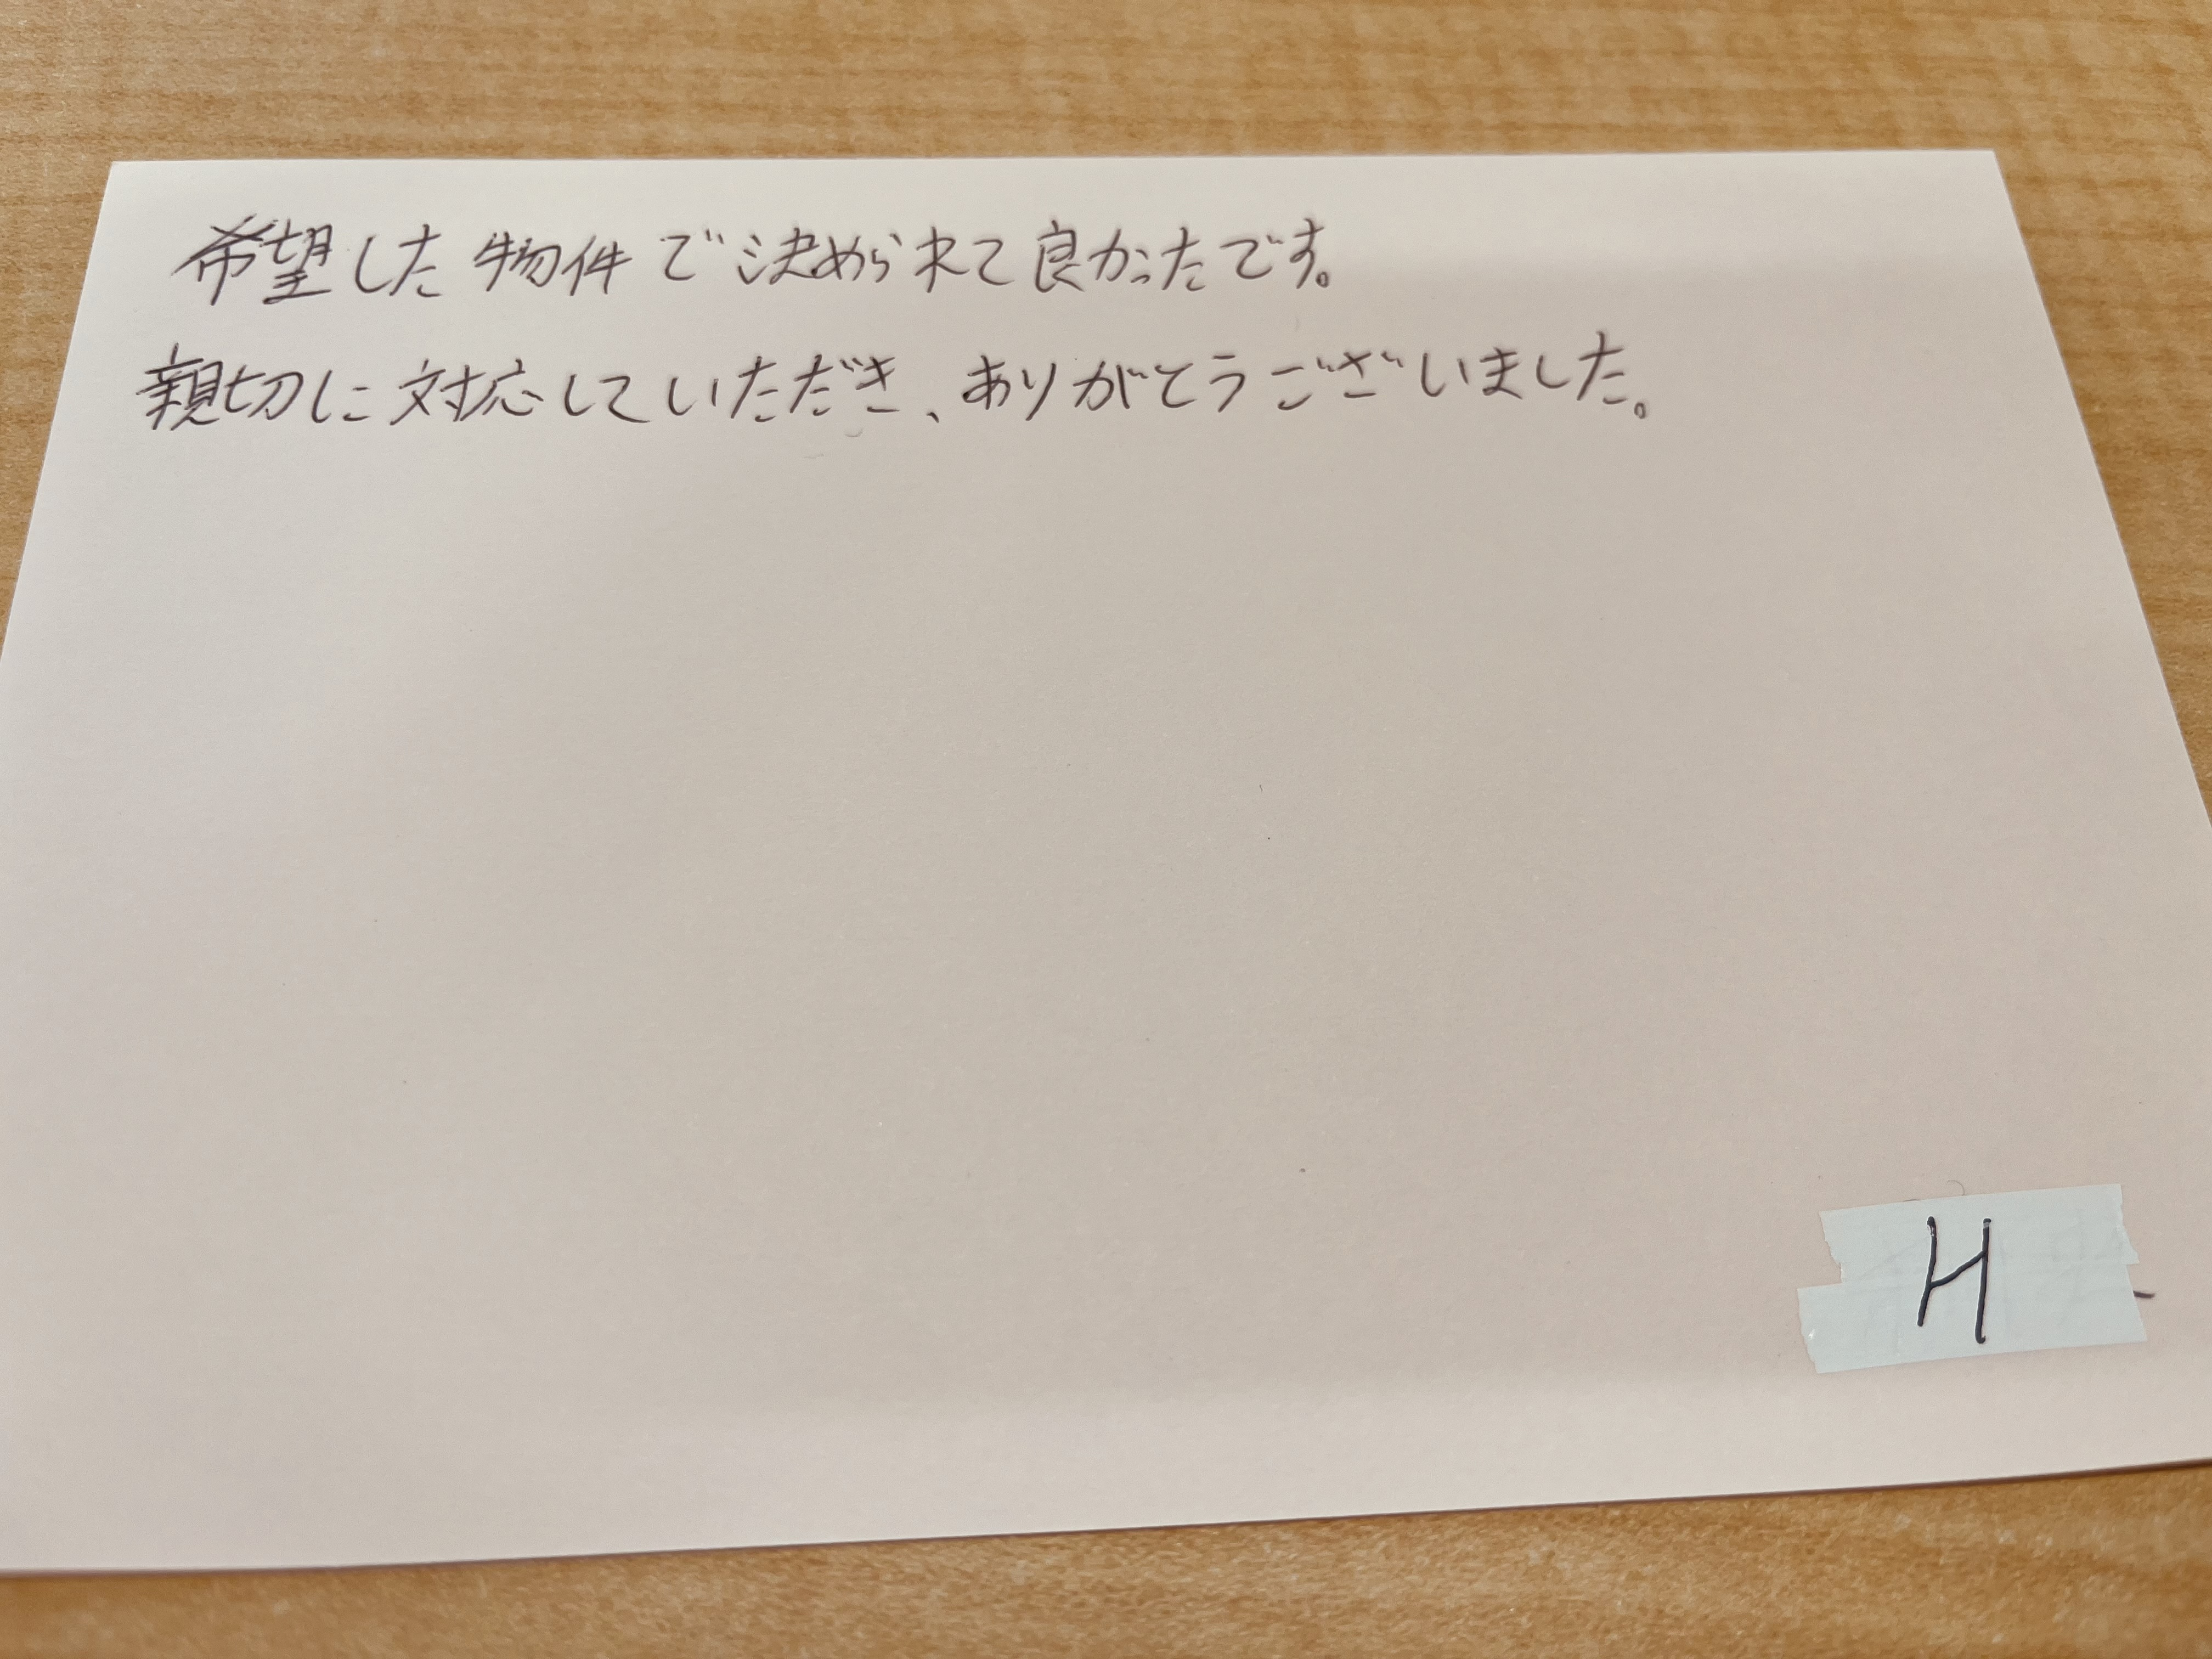 希望した物件で決められて良かったです。
親切に対応していただき、ありがとうございました。
H